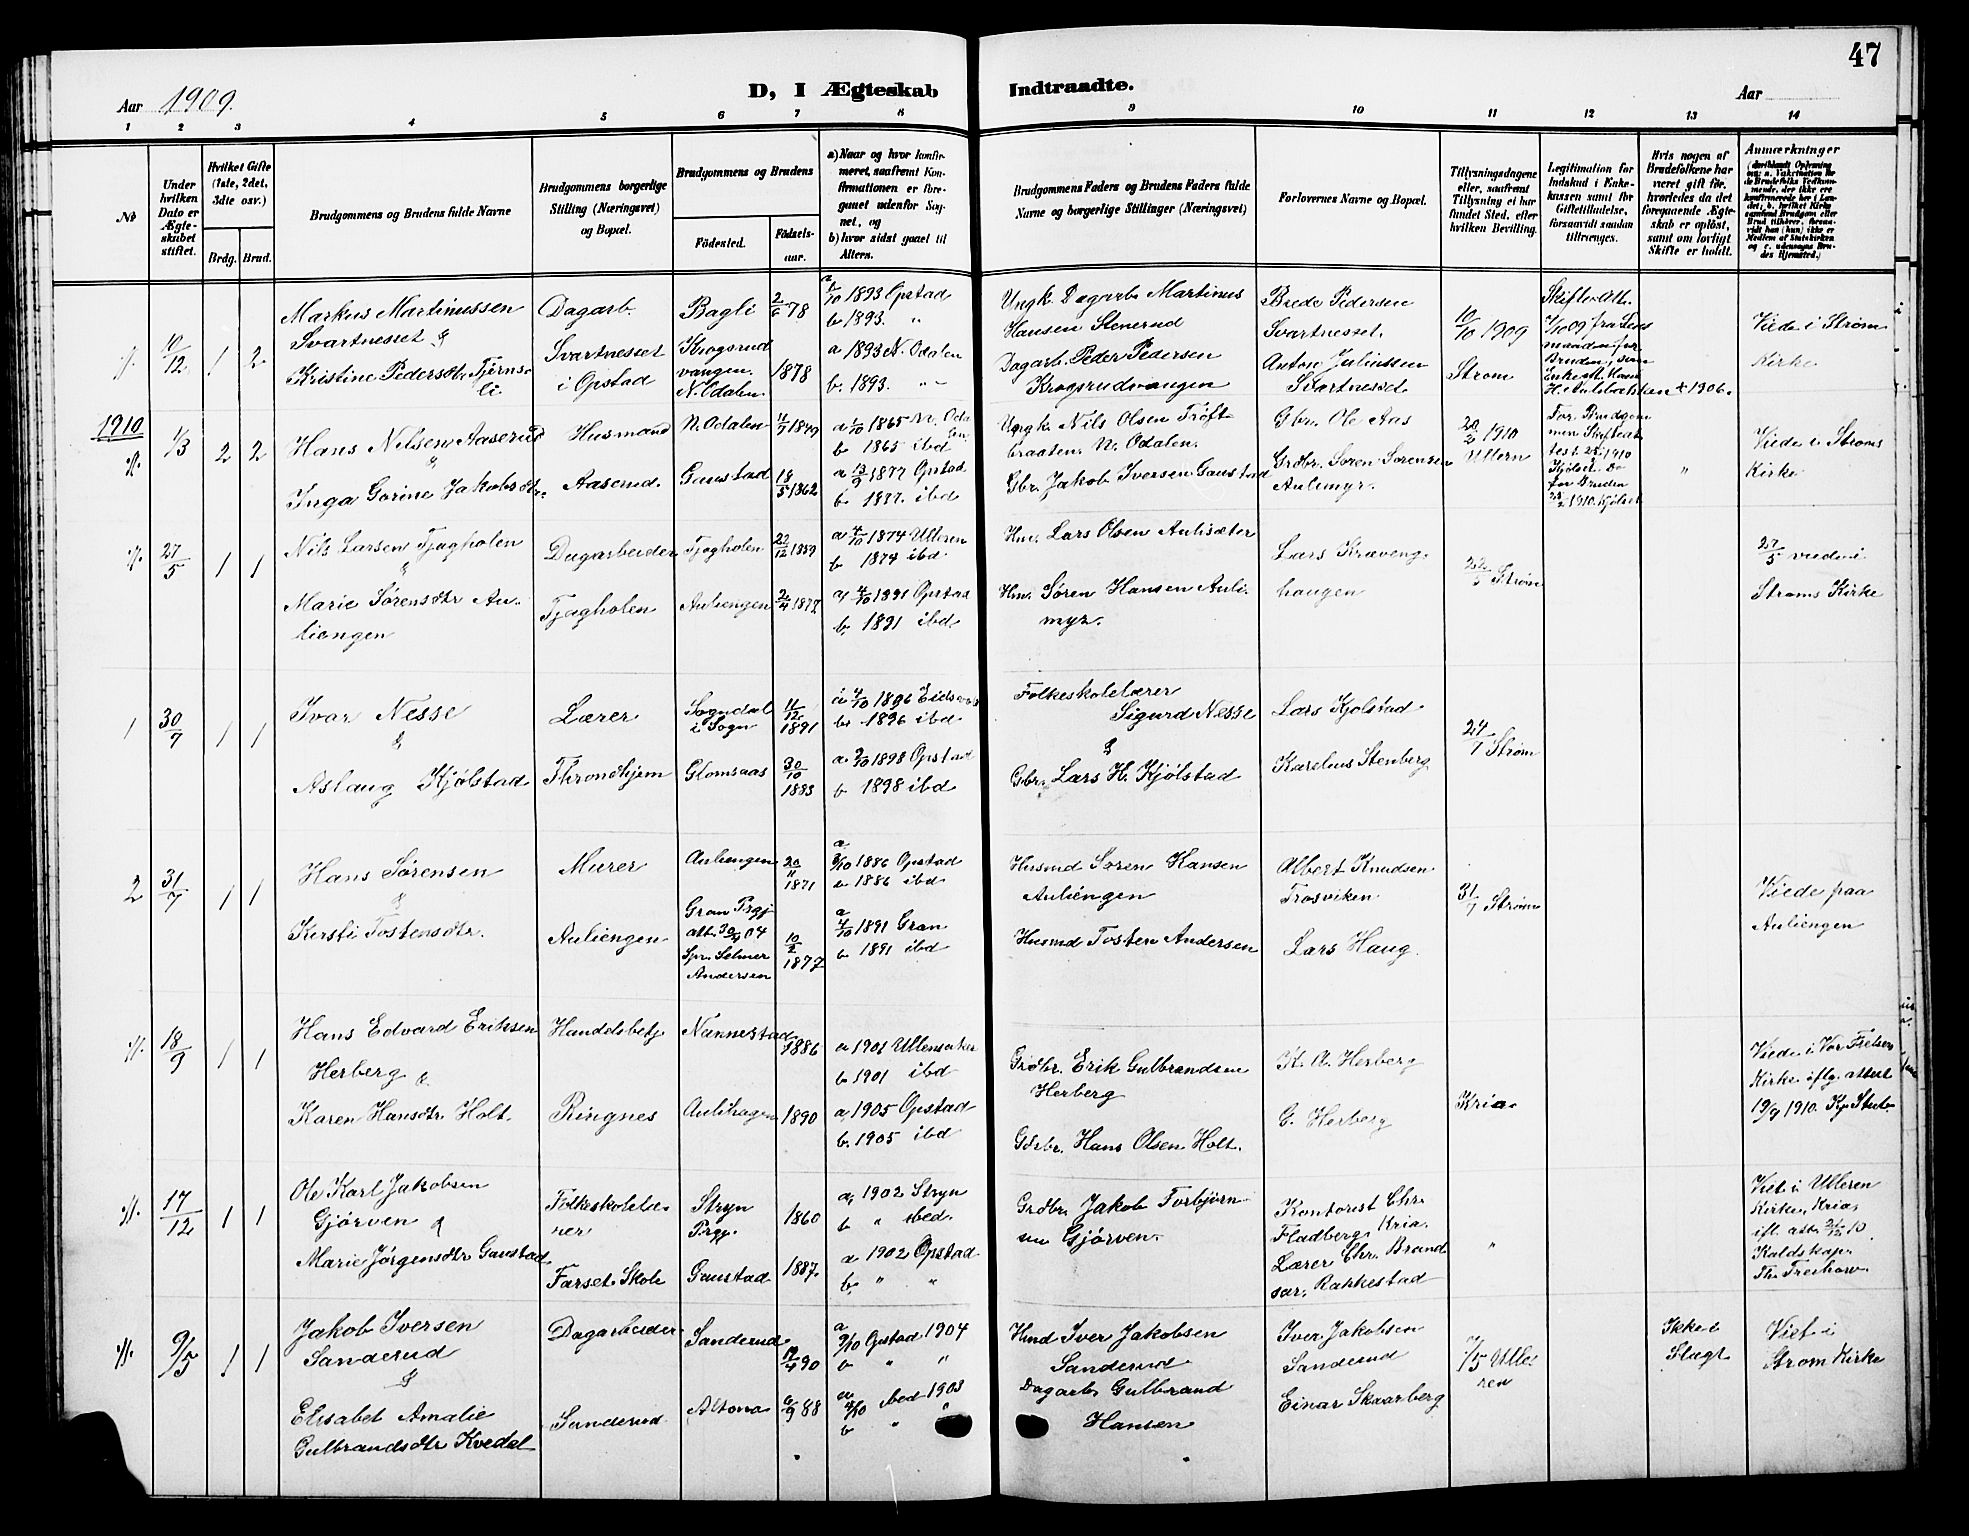 47
Aar 1909.
D, I Ægteskab Indtraadte.
Aar
1 2 3 4 5 6 7 8 9 10 11 12 13 14
No
Under hvilken Dato er Ægteskabet stiftet.
Hvilket Gifte (1ste, 2det, 3die osv.)
Brdg. Brud.
Brudgommens og Brudens fulde Navne
Brudgommens borgerlige Stilling (Næringsvei) og Bopæl.
Brudgommens og Brudens
Fødested.
Fødselsaar.
a) Naar og hvor konfirmeret, saafremt Konfirmationen er foregaaet udenfor Sognet, og
b) hvor sidst gaaet til Alters.
Brudgommens Faders og Brudens Faders fulde Navne og borgerlige Stillinger (Næringsvei)
Forlovernes Navne og Bopæl.
Tillysningsdagene eller, saafremt Tillysning ei har fundet Sted, efter hvilken Bevilling.
Legitimation for Indskud i Enkekassen samt for Giftetilladelse, forsaavidt saadan tiltrænges.
Hvis nogen af Brudefolkene har været gift før, hvorledes da det foregaaende Ægteskab er opløst, samt om lovligt Skifte er holdt.
Anmærkninger
10/12 1 2
Markus Martinussen
Svartnesset &
Kristine Pedersdtr. Tjernsli
Dagarb.
Svartnesset
i Opstad
Bagli
Krogsrud
vangen
N. Odalen.
2/6 78
1878
1893 Opstad
b 1893. "
a 1893 N. Odalen
b. 1893. "
Ungk. Dagarb. Martinus
Hansen Stenerud
Dagarb. Peder Pedersen
Krogsrudvangen
Brede Pedersen
Svartnesset.
Anton Juliussen
Svartnesset
10/10 1909
Strøm
Skifteatt.
Viede i Strøm
Kirke
1910
1/3 2 2
Hans Nilsen Aaserud
&
Inga Gorine Jakobsdtr.
Husmand
Aaserud.
N. Odalen
Gaustad
1849
18/5 1862
1865 N. Odalen
b 1865 ibd
1877 Opstad
b 1877. ibd
Ungk. Nils Olsen Trøftbraaten N. Odalen.
Gbr. Jakob Iversen Gaustad
Gbr. Ole Aas
Grdbr. Søren Sørensen
Aulimyr.
20/2 1910
Ullern
"
Viede i Strøms
Kirke
27/5 1 1
Nils Larsen Tjagholen
&
Marie Sørensdtr Auliengen
Dagarbeider
Tjagholen
Tjagholen
Auliengen
22/12 1859
2/4 1877
a 4/10 1874 Ulleren
b 1874 ibd
a 4/10 1891 Opstad
b. 1891 ibd.
Hm. Lars Olsen Aulisæter
Hm. Søren Hansen Aulimyr.
Lars Kravenghaugen
22/5 Strøm
27/5 viede i
Strøms Kirke
1 30/7 1 1
Ivar Nesse
&
Aslaug Kjølstad
Lærer
Throndhjem
Sogndal
i Sogn
Glomsaas
11/12 1891
30/10 1883
4/10 1896 Eidsvold
b. 1896 ibd
1898 Opstad
b 1898 ibd
Folkeskolelærer
Sigurd Nesse
&
Gbr. Lars H. Kjølstad
Lars Kjølstad
Karelius Stenberg
24/7 Strøm
2 31/7 1 1
Hans Sørensen
&
Kirsti Tostensdtr.
Murer
Auliengen
Auliengen
Gran Prgj.
att. 30/4 04
Spr. Selmer
Andersen
20/11 1871
10/2 1877
a 3/10 1886 Opstad
b 1886 ibd
a 4/10 1891 Gran
b 1891 ibd
Husmd Søren Hansen
Auliengen
Husmd Tosten Andersen
Albert Knudsen
Trosviken
Lars Haug.
31/7 Strøm
Viede paa
Auliengen
18/9 1 1
Hans Edvard Eriksen
Herberg &
Karen Hansdtr Holt.
Handelsbetj
Ringnes
Nannestad
Aulihagen
1886
1890
a 1901 Ullensaker
b 1901 ibd
a 1905 Opstad
b. 1905 ibd
Grdbr. Erik Gulbrandsen
Herberg
Gdrbr. Hans Olsen Holt.
K. A. Herberg
G. Herberg
Kria.
Viede i Vor Frelsers
Kirke iflg. attest
19/9 1910.
17/12 1 1
Ole Karl Jakobsen
Gjørven &
Marie Jørgensdtr Gaustad
Folkeskolelærer
Farset Skole
Stryn
Prgj.
Gaustad
1860
1887.
a. 1902 Stryn
b " ibd.
a 1902 Opstad
b. " "
Grdbr. Jakob Torbjørnsen Gjørven.
Kontorist Chr.
Fladberg, Kria.
Lærer Chr. Brandsar, Rakkestad
"
Viet i Ulleren
Kirke, Kria,
9/5 1 1
Jakob Iversen
Sanderud
&
Elisabet Amalie
Gulbrandsdtr Kvedal
Dagarbeider
Sanderud
Sanderud
Altona
17/4 90
6/9 88
a 9/10 Opstad 1904
b " "
a 4/10 ibed 1903
b " "
Hmd Iver Jakobsen
Sanderud
Dagarb. Gulbrand
Hansen
Iver Jakobsen
Sanderud
Einar Skaarberg
7/5 Ulleren
Ikke i
Slægt
Viet i
Strøm Kirke